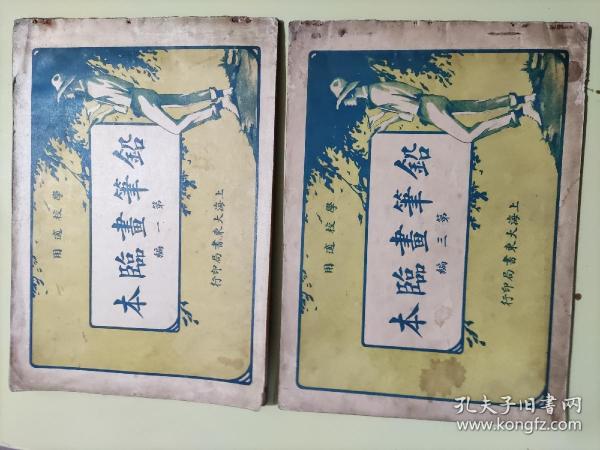 上海大東書局印行
第一編
鉛筆畫臨本
學校適用
上海大東書局印行
第三編
鉛筆畫臨本
學校適用
孔夫子旧书网
www.kongfz.com